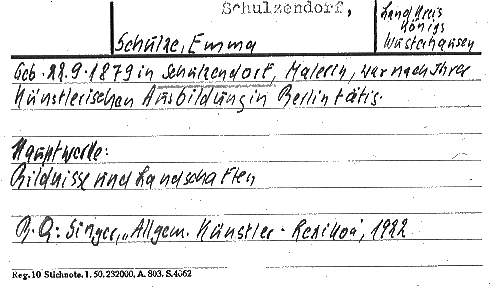 Schulzendorf,
Landkreis
Königs
Wusterhausen
Schulze, Emma
Geb. 22.9.1879 in Schulzendorf, Malerin, war nach Ihrer
Künstlerischen Ausbildung in Berlin tätig.
Hauptwerke:
Bildnisse und Landschaften
B.Q: Singer, „Allgem. Künstler-Lexikon", 1922
Reg. 10 Stichnote. 1. 50. 232000, A. 803. S. 4062